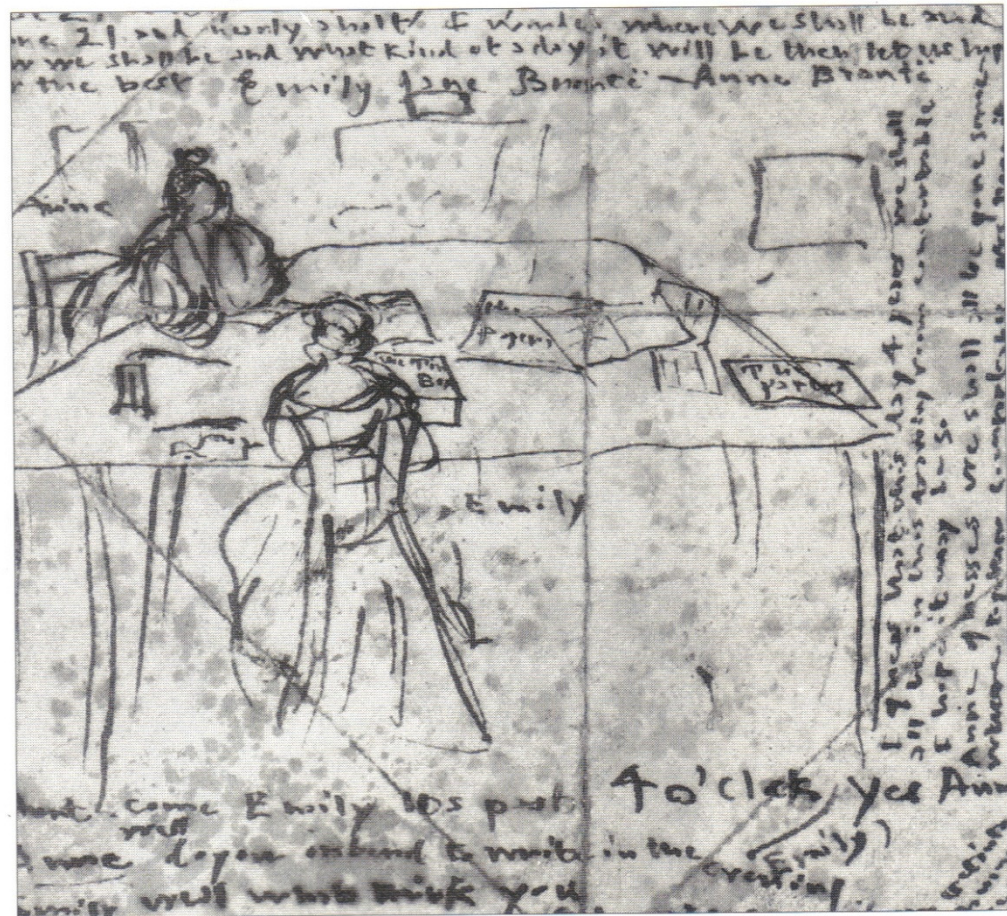 one 21 and nearly a half I wonder where we shall be and
w we shall be and what kind of a day it will be then let us hop
r the best Emily Jane Brontë — Anne Brontë
Anne
The
Papers
The Tin
Box
The
papers
Emily
I guess that this day 4 years we shall
all be in this drawing room comfortable
I hope it may be so
Anne guesses we shall all be gone some-
where together comfortable
unt. come Emily Its past 4 o'Clck yes
Emily)
well
Anne do you intend to write in the evening
well what think you